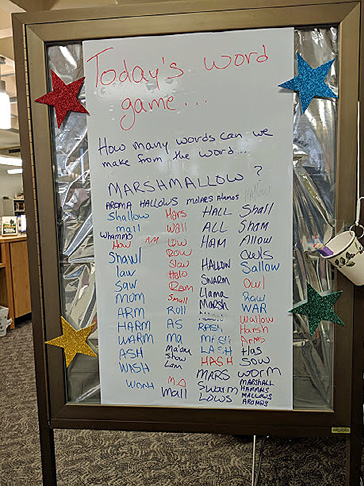 Today's word
game...
How many words can we
make from the word...
MARSHMALLOW ?
AROMA HALLOWS molars Alamos
Shallow Hars HALL Shall
mall Wall ALL Sham
whamms
How LOW HAM Allow
Row Owls
Shawl Slow HALLOW Sallow
law Halo SWARM Owl
Saw Roam Llama Raw
MOM Small MARSH WAR
ARM Roll Wallow
HARM AS Harsh
WARM Ma Arms
ASH Ma'am LASH Has
WISH Show HASH SOW
Loam MARS Worm
WORM MA Swarm MARSHALL
Mall LOWS HAMMS
MALLOWS
AROMAS